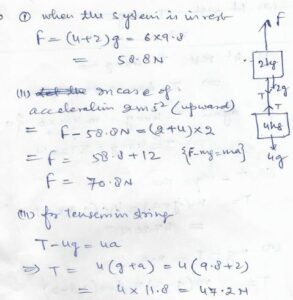 (i) when the system is in rest
F = (4+2)g = 6×9.8
= 58.8N
(ii) in case of
acceleration 2ms² (upward)
= F - 58.8N = (2+4)×2
= F = 58.8 + 12 {F-mg=ma}
F = 70.8N
(iii) for tension in string
T - 4g = 4a
⇒ T = 4(g+a) = 4(9.8+2)
= 4 × 11.8 = 47.2N
F
2kg
2g
T
T
4kg
4g